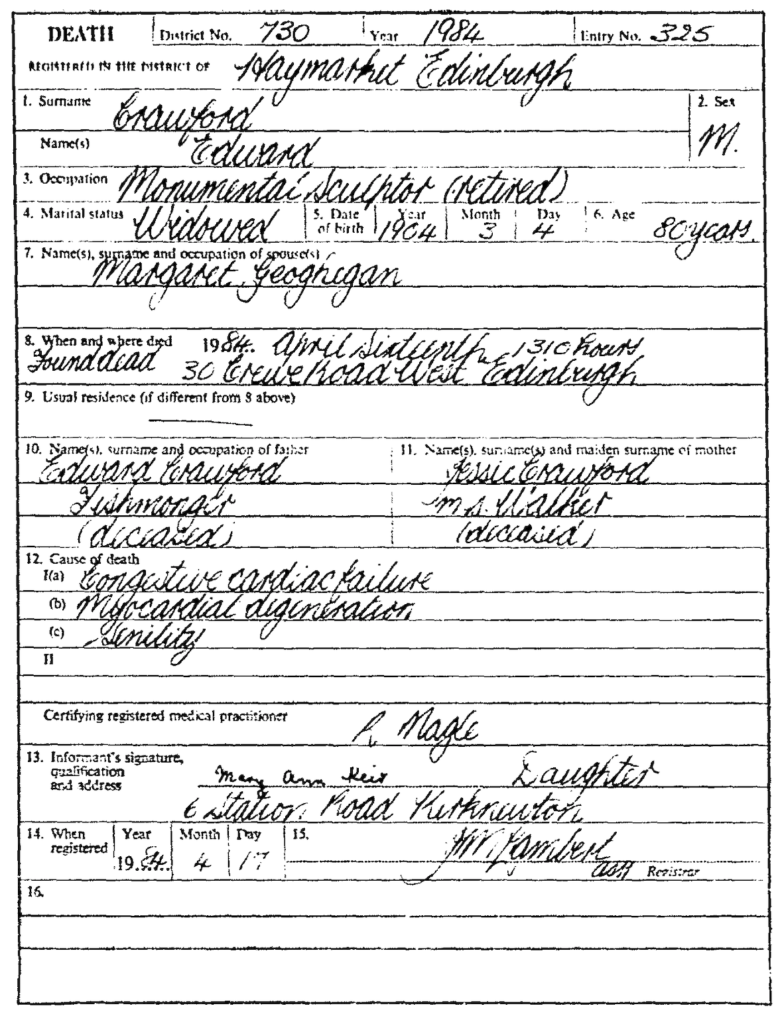 DEATH District No. 730 Year 1984 Entry No. 325
REGISTERED IN THE DISTRICT OF Haymarket Edinburgh
1. Surname Crawford 2. Sex
Name(s) Edward M.
3. Occupation Monumental Sculptor (retired)
4. Marital status Widowed 5. Date of birth Year 1904 Month 3 Day 4 6. Age 80 years.
7. Name(s), surname and occupation of spouse(s)
Margaret Geoghegan
8. When and where died 1984. April Sixteenth 1310 hours
Found dead 30 Crewe Road West Edinburgh
9. Usual residence (if different from 8 above)
10. Name(s), surname and occupation of father 11. Name(s), surname(s) and maiden surname of mother
Edward Crawford Jessie Crawford
Fishmonger m.s. Walker
(deceased) (deceased)
12. Cause of death
I(a) Congestive cardiac failure
(b) Myocardial degeneration
(c) Senility
II
Certifying registered medical practitioner
13. Informant's signature, qualification and address Mary Ann Keir Daughter
6 Station Road Kirknewton
14. When registered Year 1984 Month 4 Day 17 15. Lambert
Asst Registrar
16.